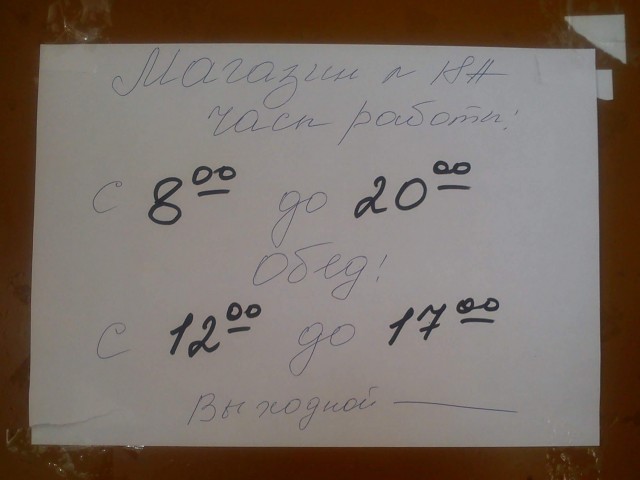 Магазин № 18А
часы работы:
с 8⁰⁰ до 20⁰⁰
Обед:
с 12⁰⁰ до 17⁰⁰
Выходной —